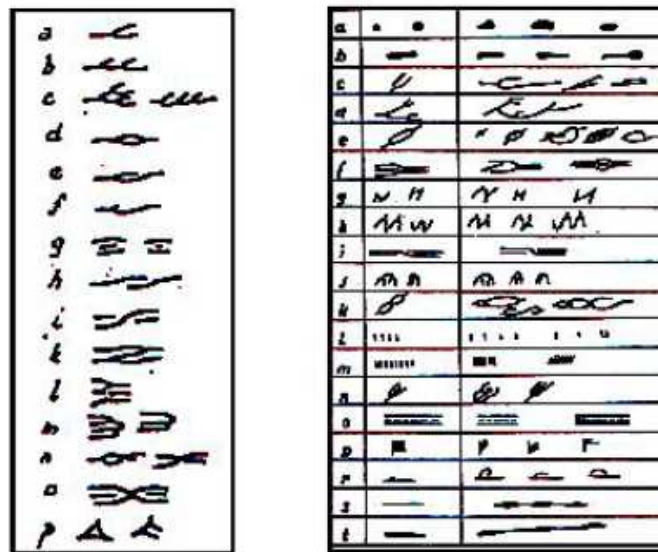 a
b
c
d
e
f
g
h
i
k
l
m
n
o
p
a
b
c
d
e
f
g
h
i
k
l
m
n
o
p
r
s
t